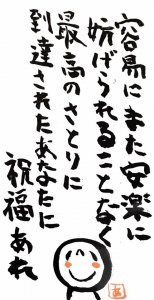 容易にまた安楽に
妨げられることなく
最高のさとりに
到達されたあなたに
祝福あれ
あ